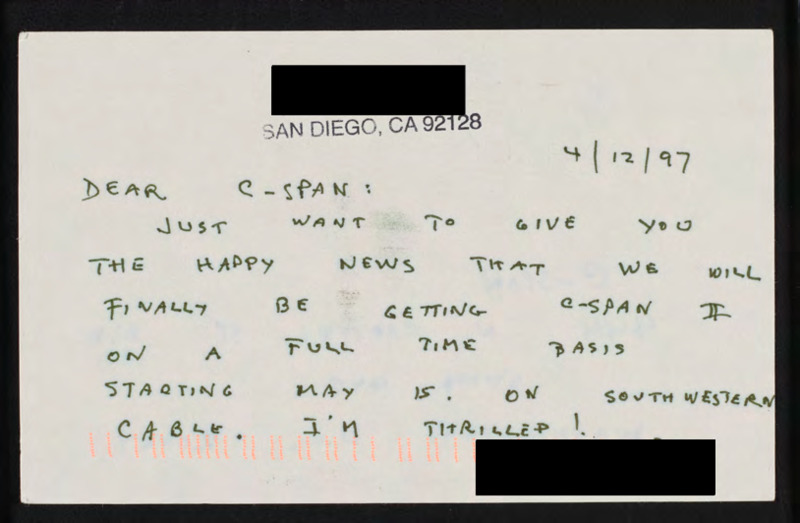 SAN DIEGO, CA 92128
4/12/97
DEAR C-SPAN:
JUST WANT TO GIVE YOU
THE HAPPY NEWS THAT WE WILL
FINALLY BE GETTING C-SPAN II
ON A FULL TIME BASIS
STARTING MAY 15. ON SOUTHWESTERN
CABLE. I'M THRILLED!